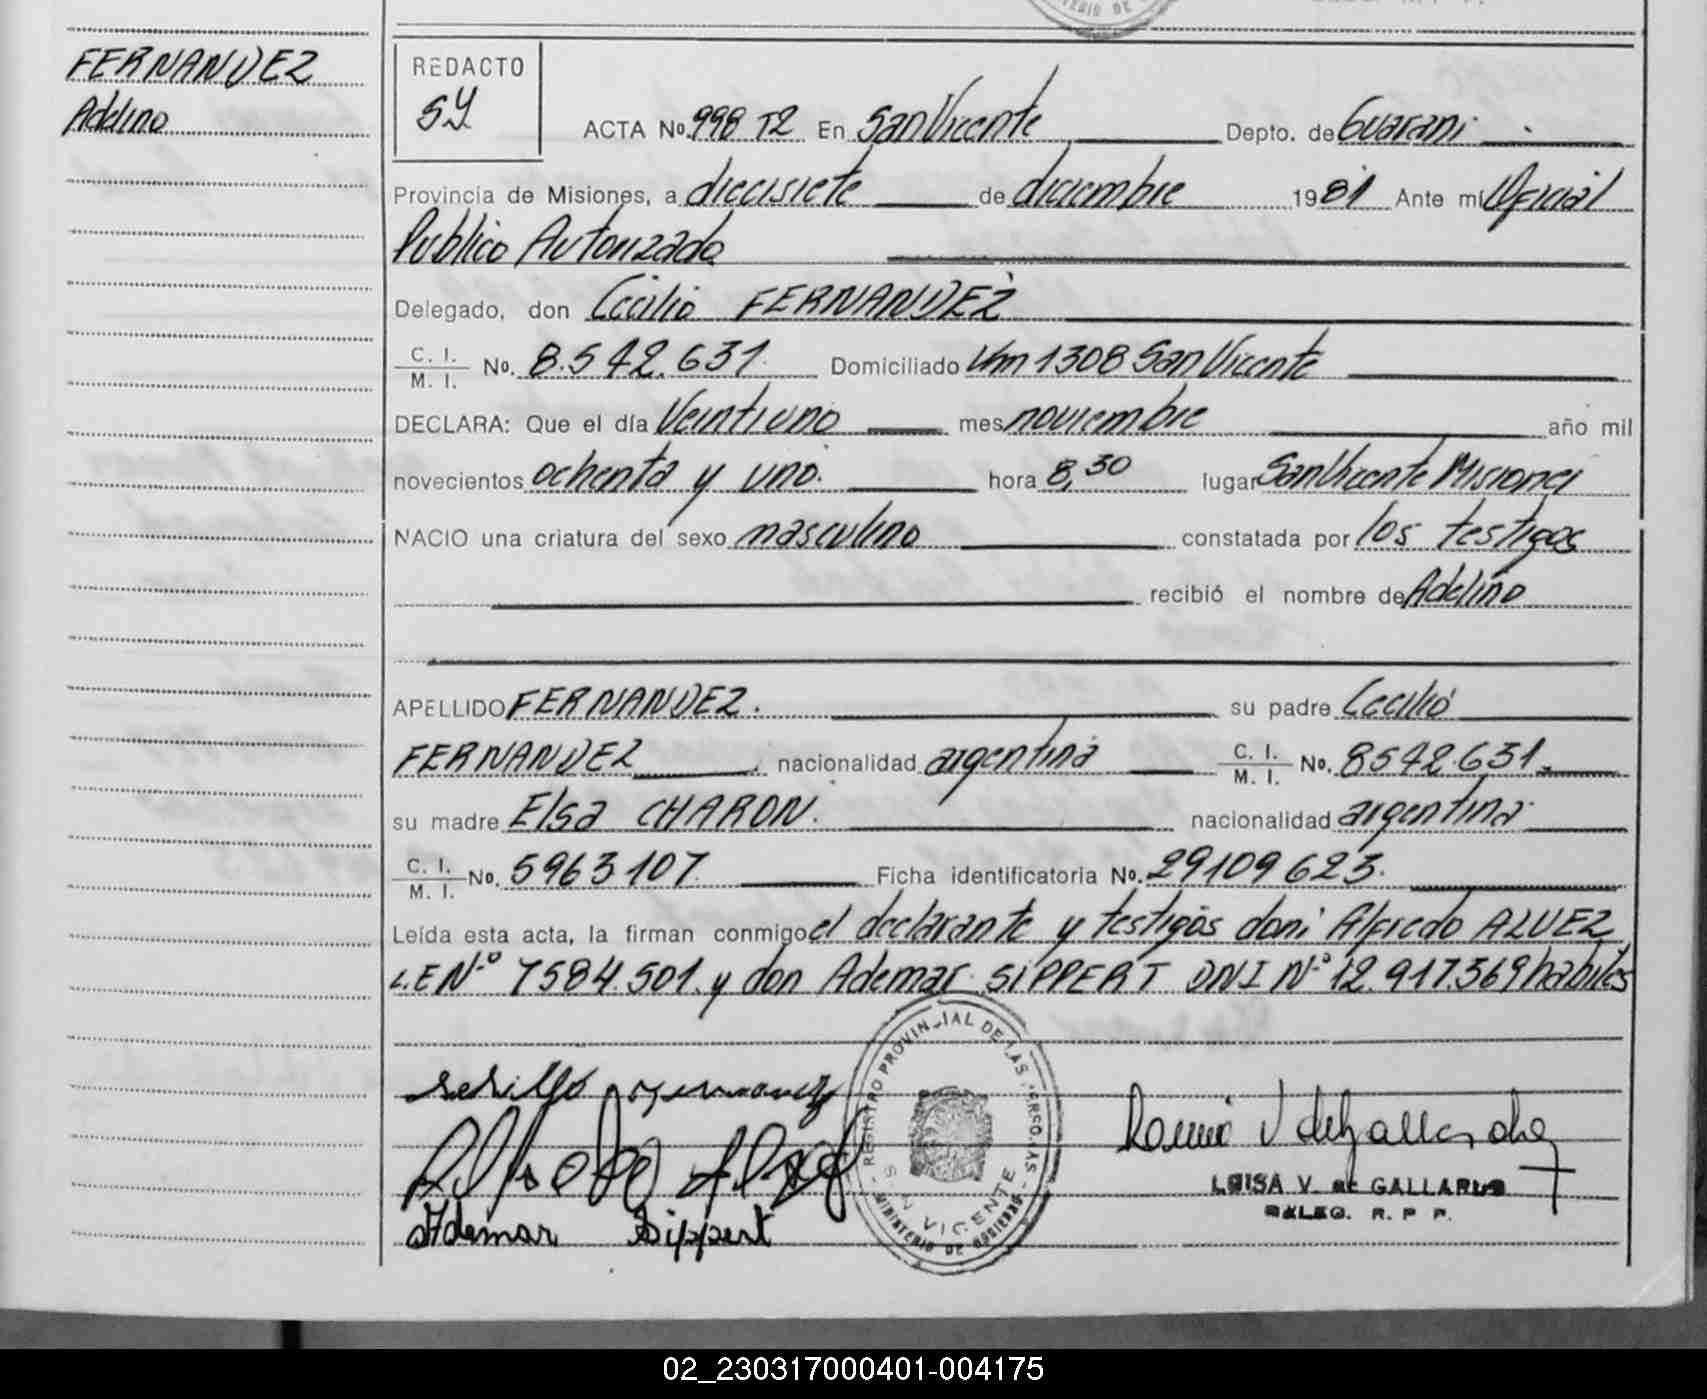 FERNANDEZ
Adelino
REDACTO
SY
ACTA No. 998 T2 En San Vicente Depto. de Guarani
Provincia de Misiones, a diecisiete de diciembre 1981 Ante mí Oficial
Publico Autorizado
Delegado, don Cecilio FERNANDEZ
C. I.
M. I. No. 8.542.631 Domiciliado Km 1308 San Vicente
DECLARA: Que el día Veintiuno mes noviembre año mil
novecientos ochenta y uno. hora 8,30 lugar San Vicente Misiones
NACIO una criatura del sexo masculino constatada por los testigos
recibió el nombre de Adelino
APELLIDO FERNANDEZ. su padre Cecilio
FERNANDEZ nacionalidad argentina C. I.
M. I. No. 8542.631.
su madre Elsa CHARON. nacionalidad argentina
C. I.
M. I. No. 5963107. Ficha identificatoria No. 29109623.
Leída esta acta, la firman conmigo el declarante y testigos don: Alfredo ALVEZ
L.E Nº 7584.501. y don Ademar SIPPERT DNI Nº 12.917.369 habiles
REGISTRO PROVINCIAL DE LAS PERSONAS
SAN VICENTE
MINISTERIO DE GOBIERNO
Ademar Sippert
LUISA V. de GALLARDO
DELEG. R. P. P.
02_230317000401-004175